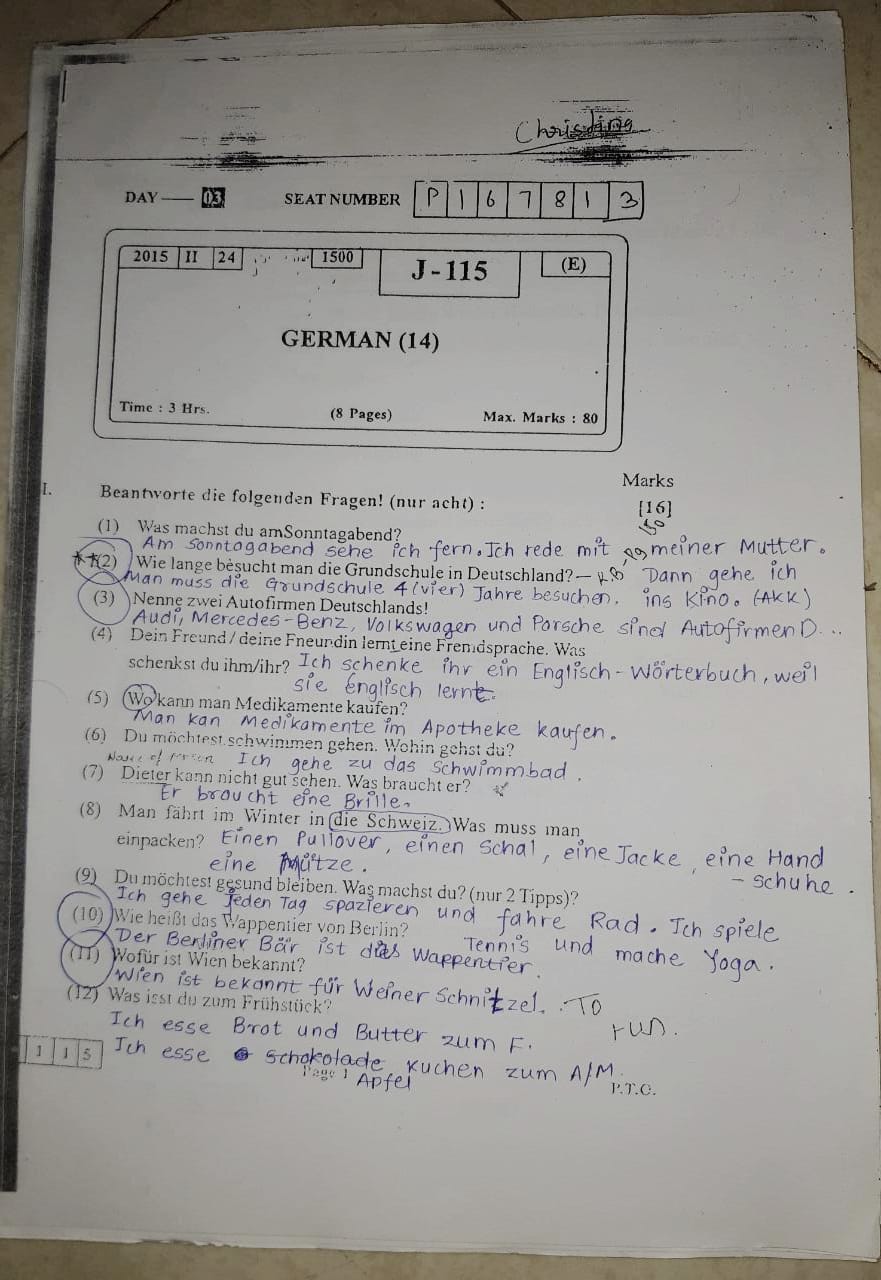 Christina
DAY — 03 SEAT NUMBER P 1 6 7 8 1 3
2015 II 24 1500 J-115 (E)
GERMAN (14)
Time : 3 Hrs. (8 Pages) Max. Marks : 80
Marks
I. Beantworte die folgenden Fragen! (nur acht) : [16]
(1) Was machst du amSonntagabend?
Am sonntagabend sehe ich fern. Ich rede mit meiner Mutter.
(2) Wie lange besucht man die Grundschule in Deutschland?— Dann gehe ich
Man muss die Grundschule 4 (vier) Jahre besuchen. ins Kino. (AKK)
(3) Nenne zwei Autofirmen Deutschlands!
Audi, Mercedes-Benz, Volkswagen und Porsche sind Autofirmen D...
(4) Dein Freund / deine Fneurdin lernt eine Fremdsprache. Was
schenkst du ihm/ihr? Ich schenke ihr ein Englisch-Wörterbuch, weil
sie Englisch lernt.
(5) Wo kann man Medikamente kaufen?
Man kan Medikamente im Apotheke kaufen.
(6) Du möchtest schwimmen gehen. Wohin gehst du?
Ich gehe zu das Schwimmbad.
(7) Dieter kann nicht gut sehen. Was braucht er?
Er braucht eine Brille.
(8) Man fährt im Winter in die Schweiz. Was muss man
einpacken? Einen Pullover, einen Schal, eine Jacke, eine Hand
eine Mütze. - schuhe.
(9) Du möchtest gesund bleiben. Was machst du? (nur 2 Tipps)?
Ich gehe jeden Tag spazieren und fahre Rad. Ich spiele
(10) Wie heißt das Wappentier von Berlin? Tennis und mache Yoga.
Der Berliner Bär ist das Wappentier.
(11) Wofür ist Wien bekannt?
Wien ist bekannt für Weiner Schnitzel. TO
(12) Was isst du zum Frühstück? run.
Ich esse Brot und Butter zum F.
1 1 5 Ich esse Schokolade Kuchen zum A/M.
Page 1 Apfel P.T.O.